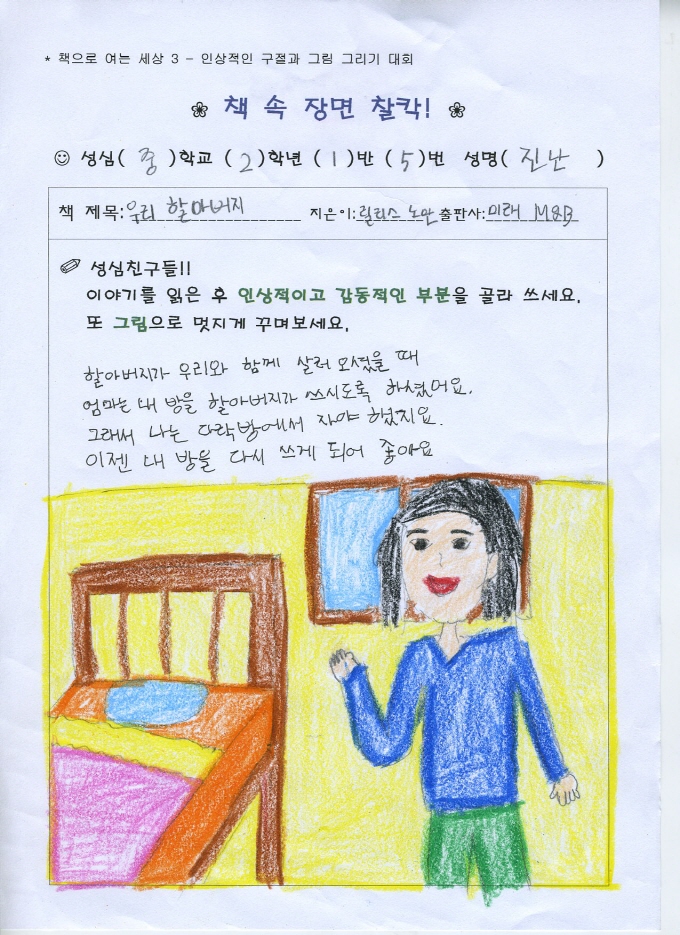 * 책으로 여는 세상 3 - 인상적인 구절과 그림 그리기 대회
책 속 장면 찰칵!
성심( 중 )학교 ( 2 )학년 ( 1 )반 ( 5 )번 성명( 진난 )
책 제목: 우리 할아버지 지은이: 릴리스 노만 출판사: 미래 M&B
성심친구들!!
이야기를 읽은 후 인상적이고 감동적인 부분을 골라 쓰세요.
또 그림으로 멋지게 꾸며보세요.
할아버지가 우리와 함께 살러 오셨을 때
엄마는 내 방을 할아버지가 쓰시도록 하셨어요.
그래서 나는 다락방에서 자야 했지요.
이젠 내 방을 다시 쓰게 되어 좋아요